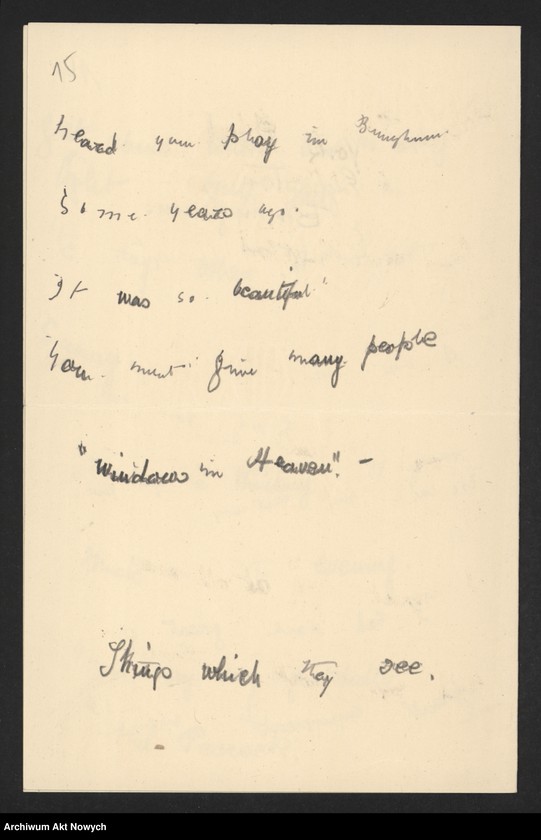 15
heard you play in
Some years ago.
It was so beautiful
You must give many people
"Windows in Heaven". –
Things which they see.
Archiwum Akt Nowych